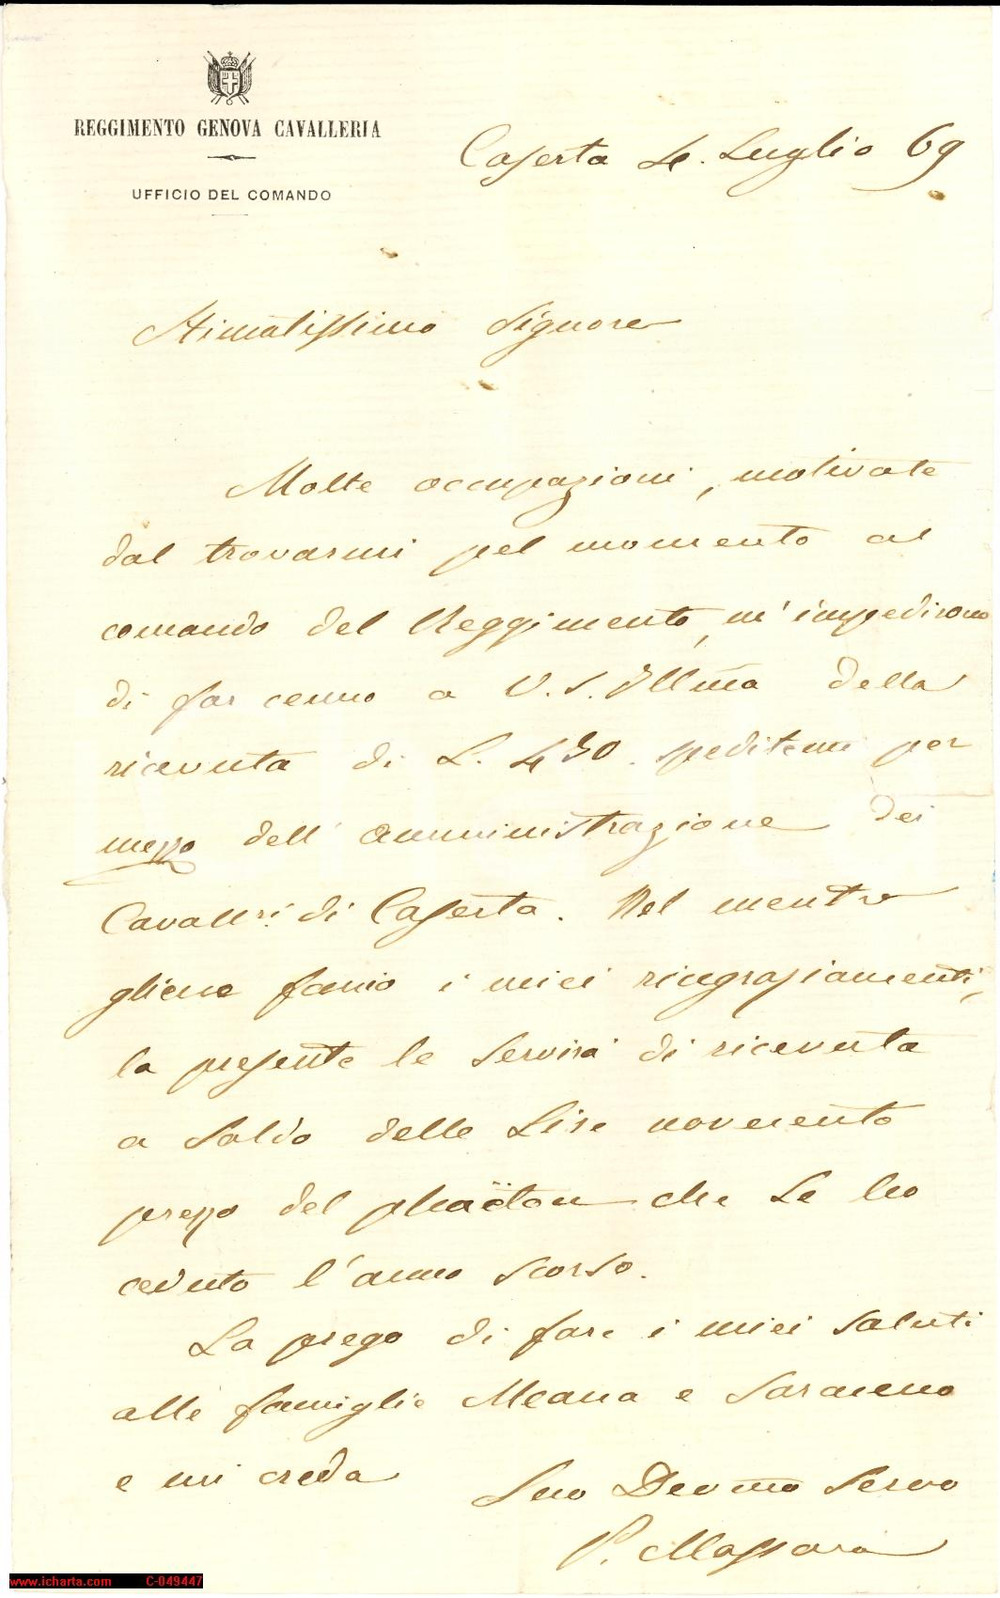 REGGIMENTO GENOVA CAVALLERIA
UFFICIO DEL COMANDO
Caserta 4. Luglio 69
Stimatissimo Signore
Molte occupazioni, motivate
dal trovarmi pel momento al
comando del Reggimento, m'impedirono
di far cenno a V. S. Illma della
ricevuta di L. 430. speditemi per
mezzo dell'amministrazione dei
Cavalli di Caserta. Nel mentre
gliene faccio i miei ringraziamenti,
la presente le servirà di ricevuta
a saldo delle Lire novecento
prezzo del phaëton che Le ho
ceduto l'anno scorso.
La prego di fare i miei saluti
alle famiglie Meana e Saraceno
e mi creda
Suo Devmo Servo
P. Massara
www.icharta.com C-049447